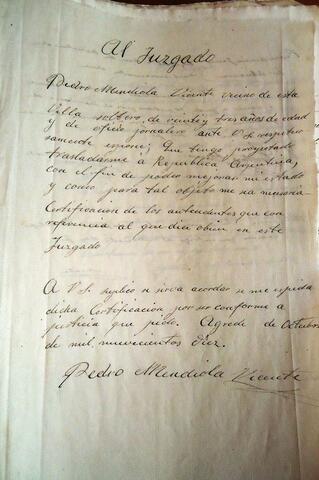 Al Juzgado
Pedro Mendiola Vicente vecino de esta
Villa soltero, de veinte y tres años de edad
y de oficio jornalero ante V.S. respetuo
samente espone; Que tengo proyectado
trasladarme a Republica Argentina,
con el fin de poder mejorar mi estado
y como para tal objeto me es necesaria
Certificación de los antecedentes que con
referencia al que dice obren en este
Juzgado
A V.S. suplico se sirva acordar se me expida
dicha Certificación por ser conforme a
justicia que pido. Agreda de Octubre
de mil novecientos diez.
Pedro Mendiola Vicente